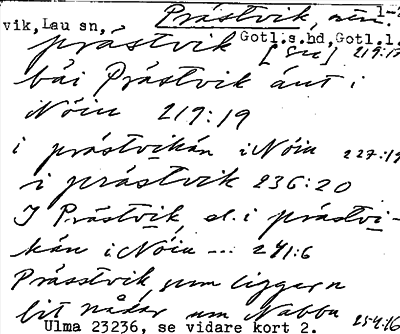 Prästvik, 1-2
vik, Lau sn, Gotl.s.hd, Gotl.l.
prästvik [sic] 219:17
bäi Prästvik äut i
Nöiu 219:19
i prästvikän i Nöiu 227:19
i prästvik 236:20
I Prästvik, el. i prästvi-
kän i Nöiu --- 241:6
Prässtvik sum ligger n
bit nådär um Nabbu 254:16
Ulma 23236, se vidare kort 2.